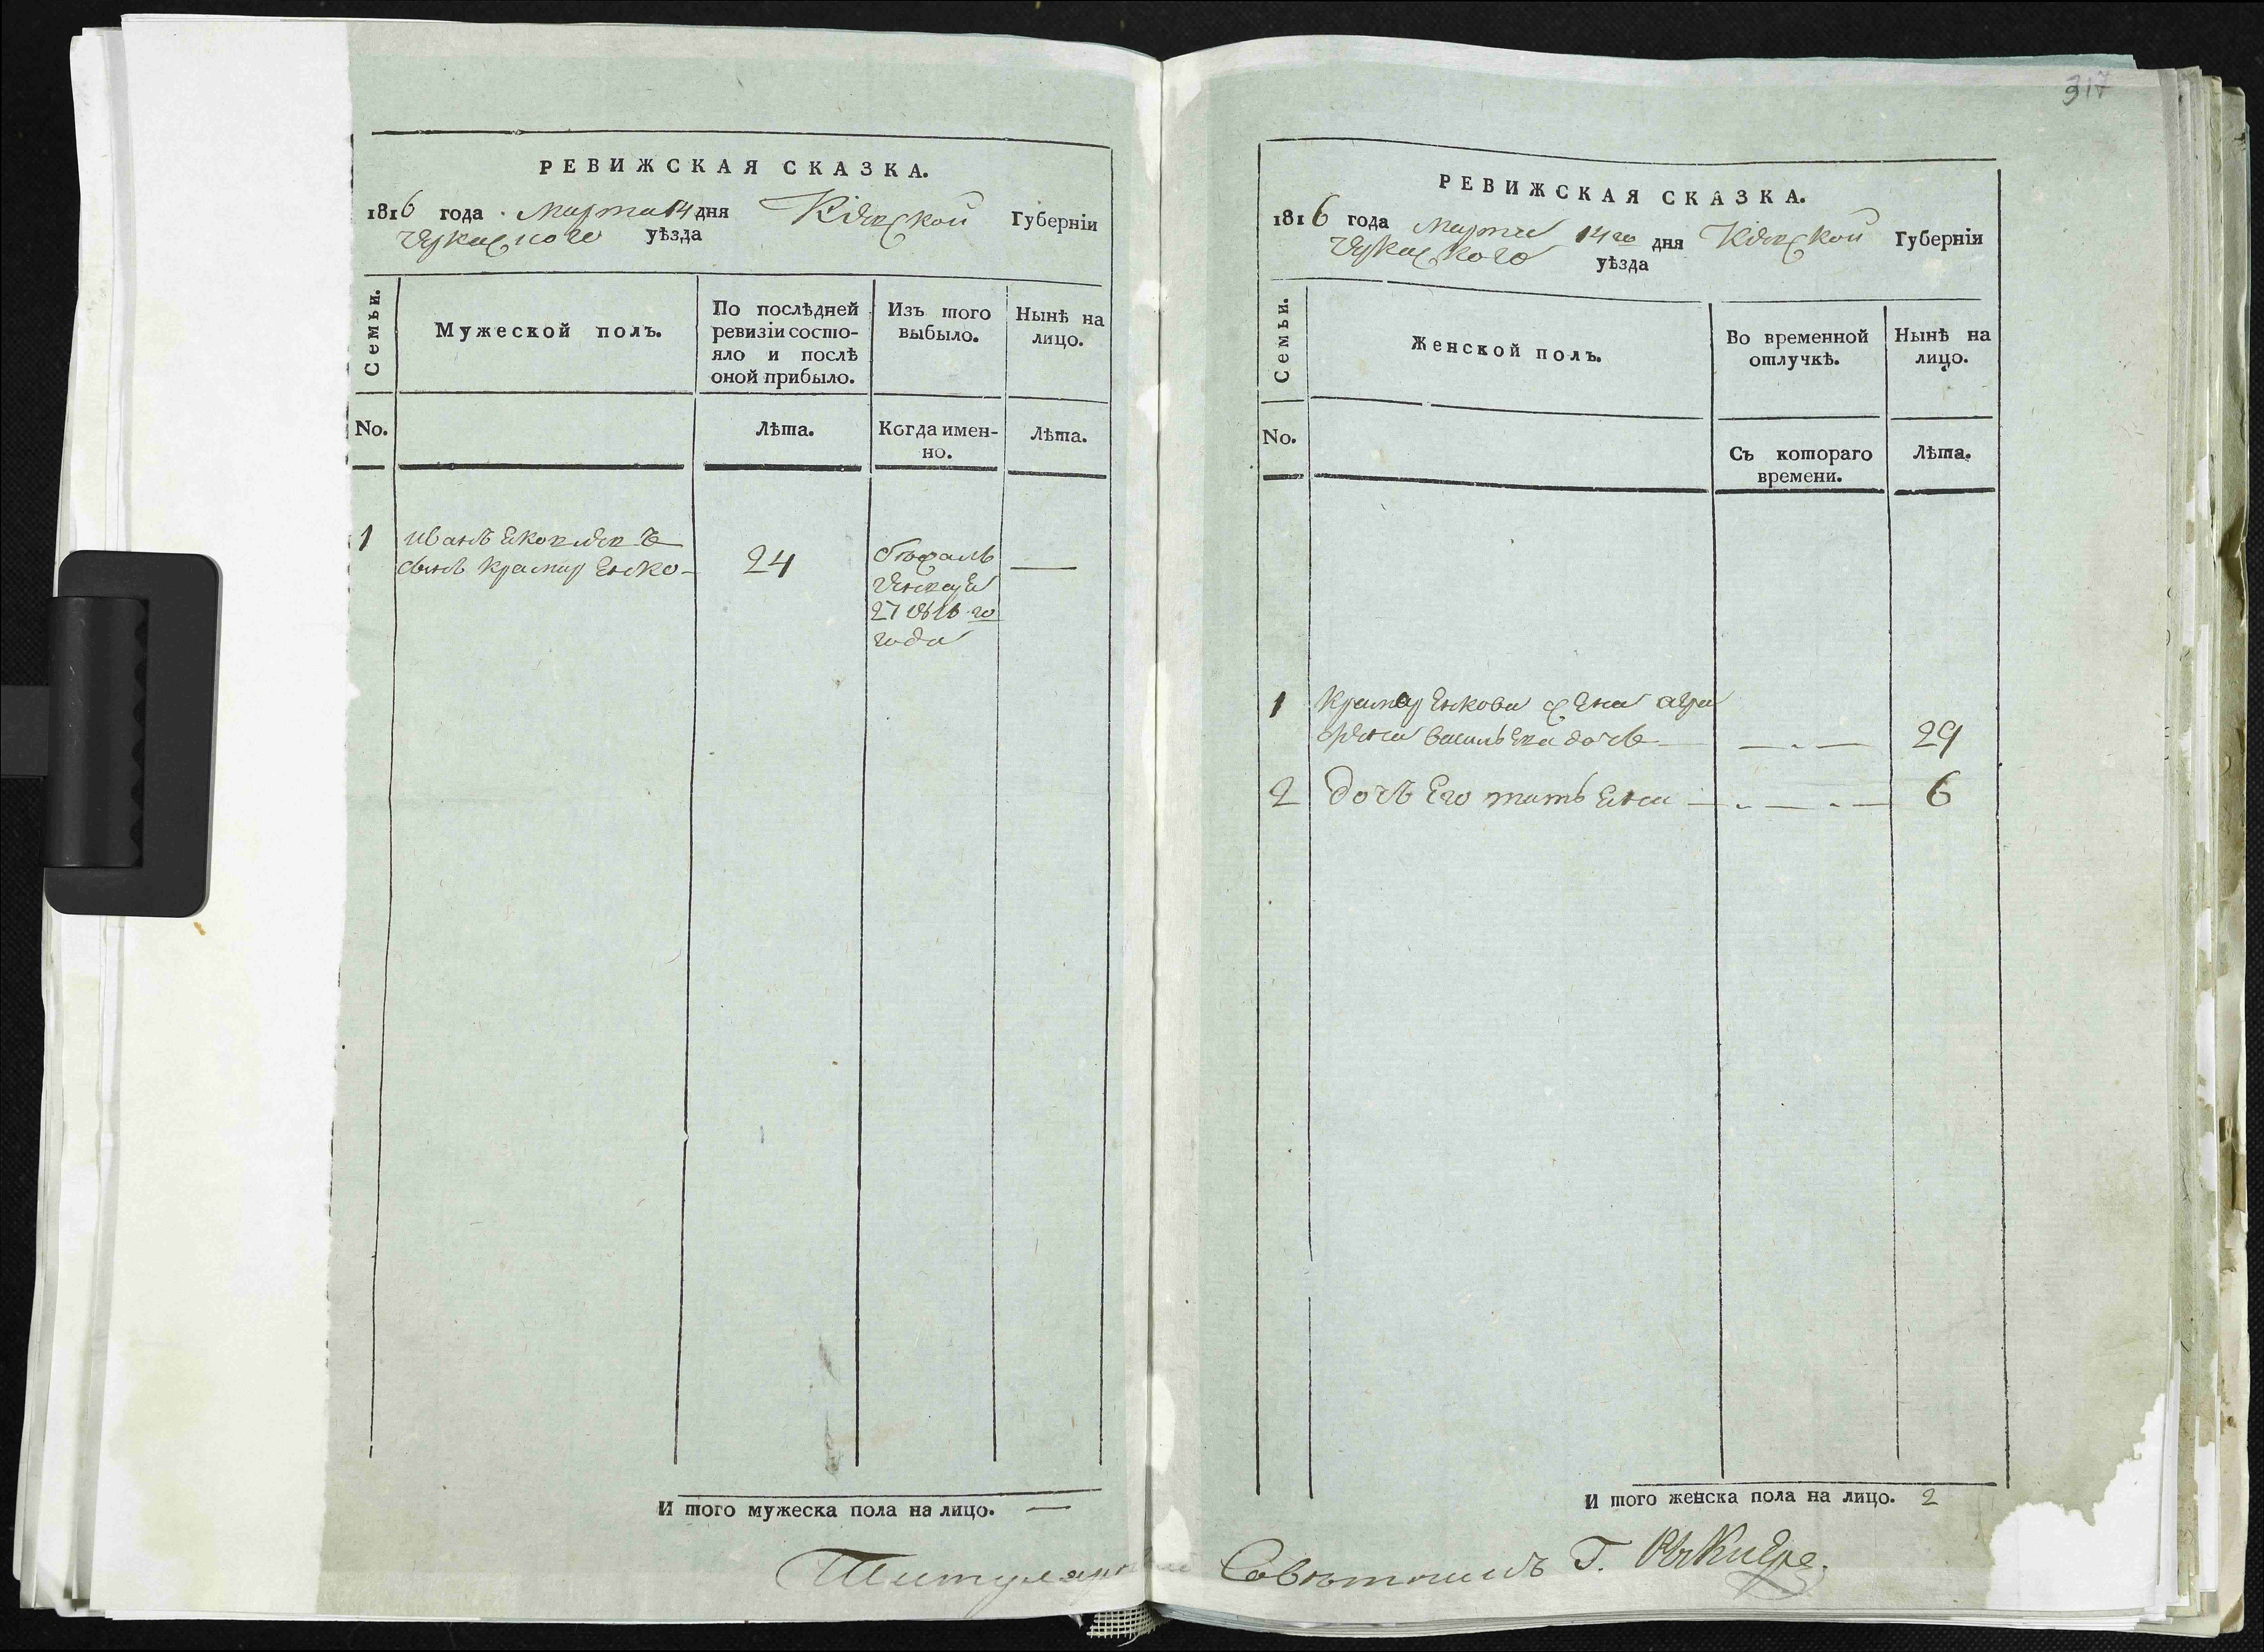 РЕВИЖСКАЯ СКАЗКА.
1816 года марта 14 дня Кіевской Губерніи
Черкаского уѣзда
Семьи.
Мужеской полъ.
По послѣдней ревизіи состо-
яло и послѣ
оной прибыло.
Изъ того
выбыло.
Нынѣ на
лицо.
No.
Лѣта.
Когда имен-
но.
Лѣта.
1 иванъ
сынъ крамаренко
24
бѣжалъ
генваря
27 1816 го
года
И того мужеска пола на лицо. —
Титулярный
317
РЕВИЖСКАЯ СКАЗКА.
1816 года марта 14 го дня Кіевской Губернія
Черкаского уѣзда
Семьи.
Женской полъ.
Во временной
отлучкѣ.
Нынѣ на
лицо.
No.
Съ котораго
времени.
Лѣта.
1 крамаренкова жена
васильева дочь 29
2 дочь его татьяна 6
И того женска пола на лицо. 2
Совѣтникъ Г.